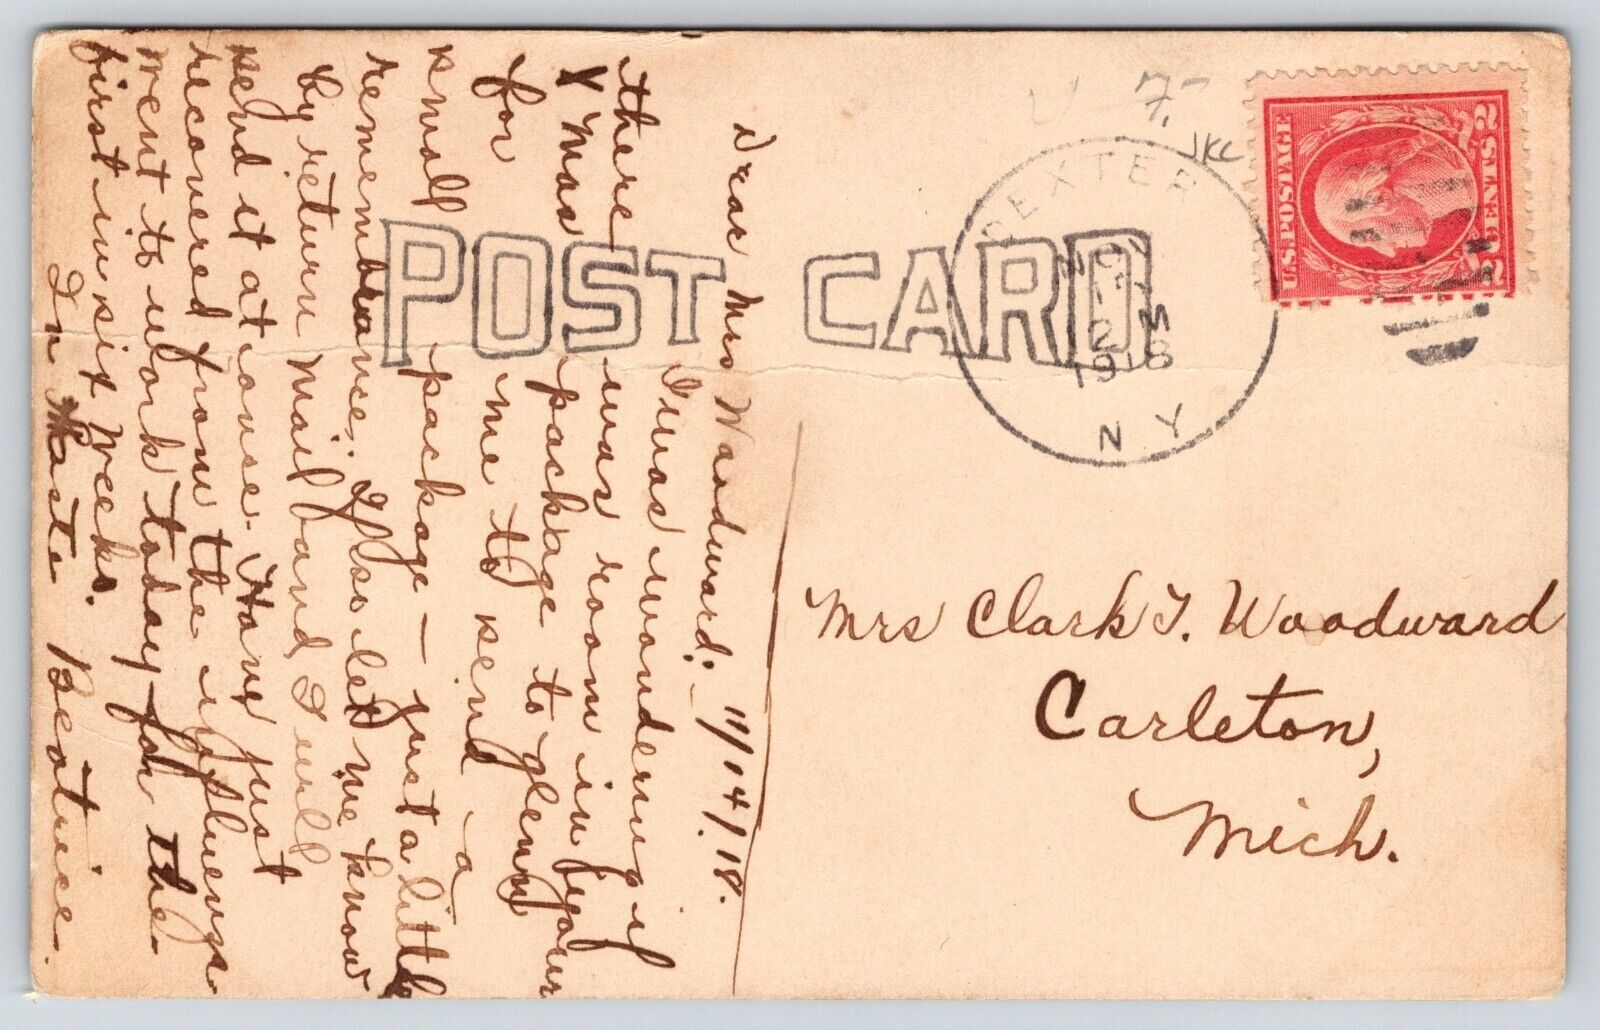 Dear Mrs Woodward: 11/04/18.
I was wondering if
there was room in your
Xmas package to glenn
for me to send a
small package — just a little
remembrance. Also let me know
by return mail and I will
send it at once. Have just
recovered from the influenza
went to work today for the
first in six weeks.
In Haste Beatrice.
POST CARD
DEXTER
NOV
12
M
1918
N Y
7.
JKC
U.S. POSTAGE
2 CENTS 2
Mrs Clark T. Woodward
Carleton,
Mich.